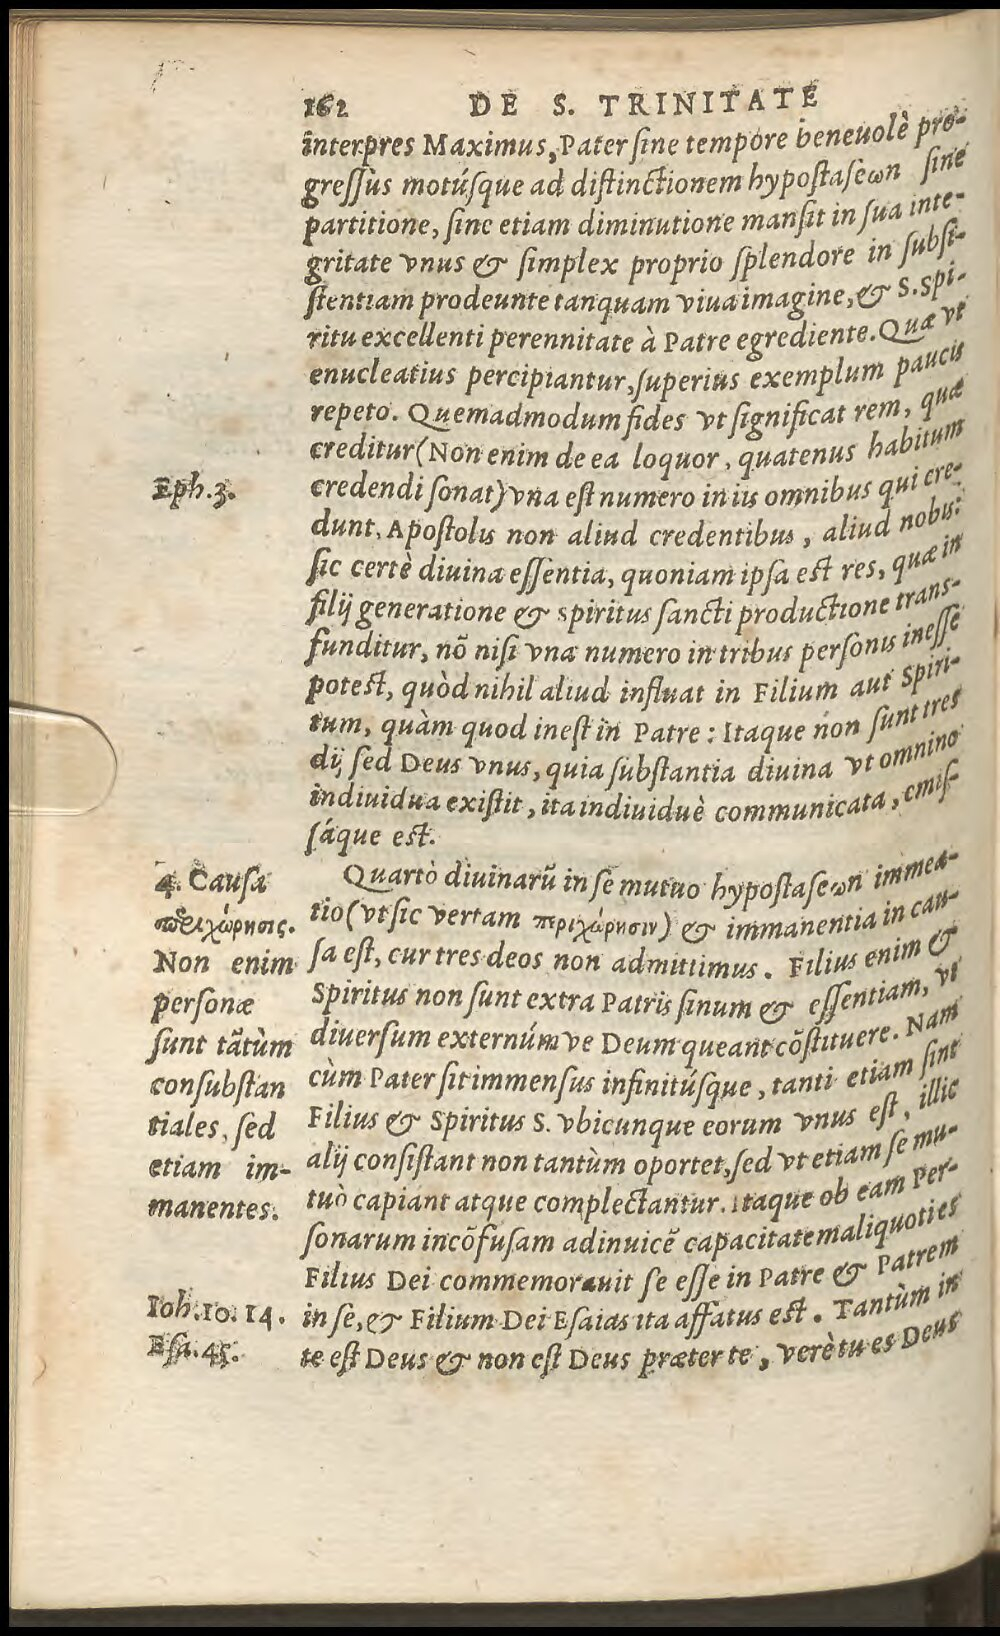 162 DE S. TRINITATE
interpres Maximus, Pater ſine tempore beneuolè pro-
greſſus motúſque ad diſtinctionem hypoſtaſeωn ſine
partitione, ſine etiam diminutione manſit in ſua inte-
gritate vnus & ſimplex proprio ſplendore in ſubſi-
ſtentiam prodeunte tanquam viua imagine, & S. Spi-
ritu excellenti perennitate à Patre egrediente. Quæ vt
enucleatius percipiantur, ſuperius exemplum paucis
repeto. Quemadmodum fides vt ſignificat rem, quæ
creditur (Non enim de ea loquor, quatenus habitum
Eph. 3.
credendi ſonat) vna eſt numero in iis omnibus qui cre-
dunt, Apoſtolis non aliud credentibus, aliud nobis:
ſic certè diuina eſſentia, quoniam ipſa eſt res, quæ in
filij generatione & Spiritus ſancti productione trans-
funditur, nō niſi vna numero in tribus perſonis ineſſe
poteſt, quòd nihil aliud influat in Filium aut Spiri-
tum, quàm quod ineſt in Patre: Itaque non ſunt tres
dij ſed Deus vnus, quia ſubſtantia diuina vt omnino
indiuidua exiſtit, ita indiuiduè communicata, emiſ-
ſáque eſt.
4. Cauſa
περιχώρησις.
Non enim
perſonæ
ſunt tātùm
conſubſtan
tiales, ſed
etiam im-
manentes.
Quartò diuinarū in ſe mutuo hypoſtaſeωn immea-
tio (vt ſic vertam περιχώρησιν) & immanentia in cau-
ſa eſt, cur tres deos non admittimus. Filius enim &
Spiritus non ſunt extra Patris ſinum & eſſentiam, vt
diuerſum externúmve Deum queant cōſtituere. Nam
cùm Pater ſit immenſus infinitúſque, tanti etiam ſint
Filius & Spiritus S. vbicunque eorum vnus eſt, illic
alij conſiſtant non tantùm oportet, ſed vt etiam ſe mu-
tuò capiant atque complectantur. Itaque ob eam Per-
ſonarum incōfuſam adinuicē capacitatem aliquoties
Filius Dei commemorauit ſe eſſe in Patre & Patrem
Ioh. 10. 14.
in ſe, & Filium Dei Eſaias ita affatus eſt. Tantùm in
Eſa. 45.
te eſt Deus & non eſt Deus præter te, verè tu es Deus